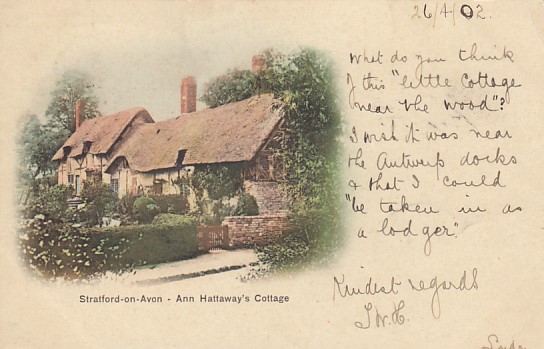 26/4/02.
What do you think
of this "little cottage
near the wood"?
I wish it was near
the Antwerp docks
& that I could
"be taken in as
a lodger."
Kindest regards
Stratford-on-Avon - Ann Hattaway's Cottage